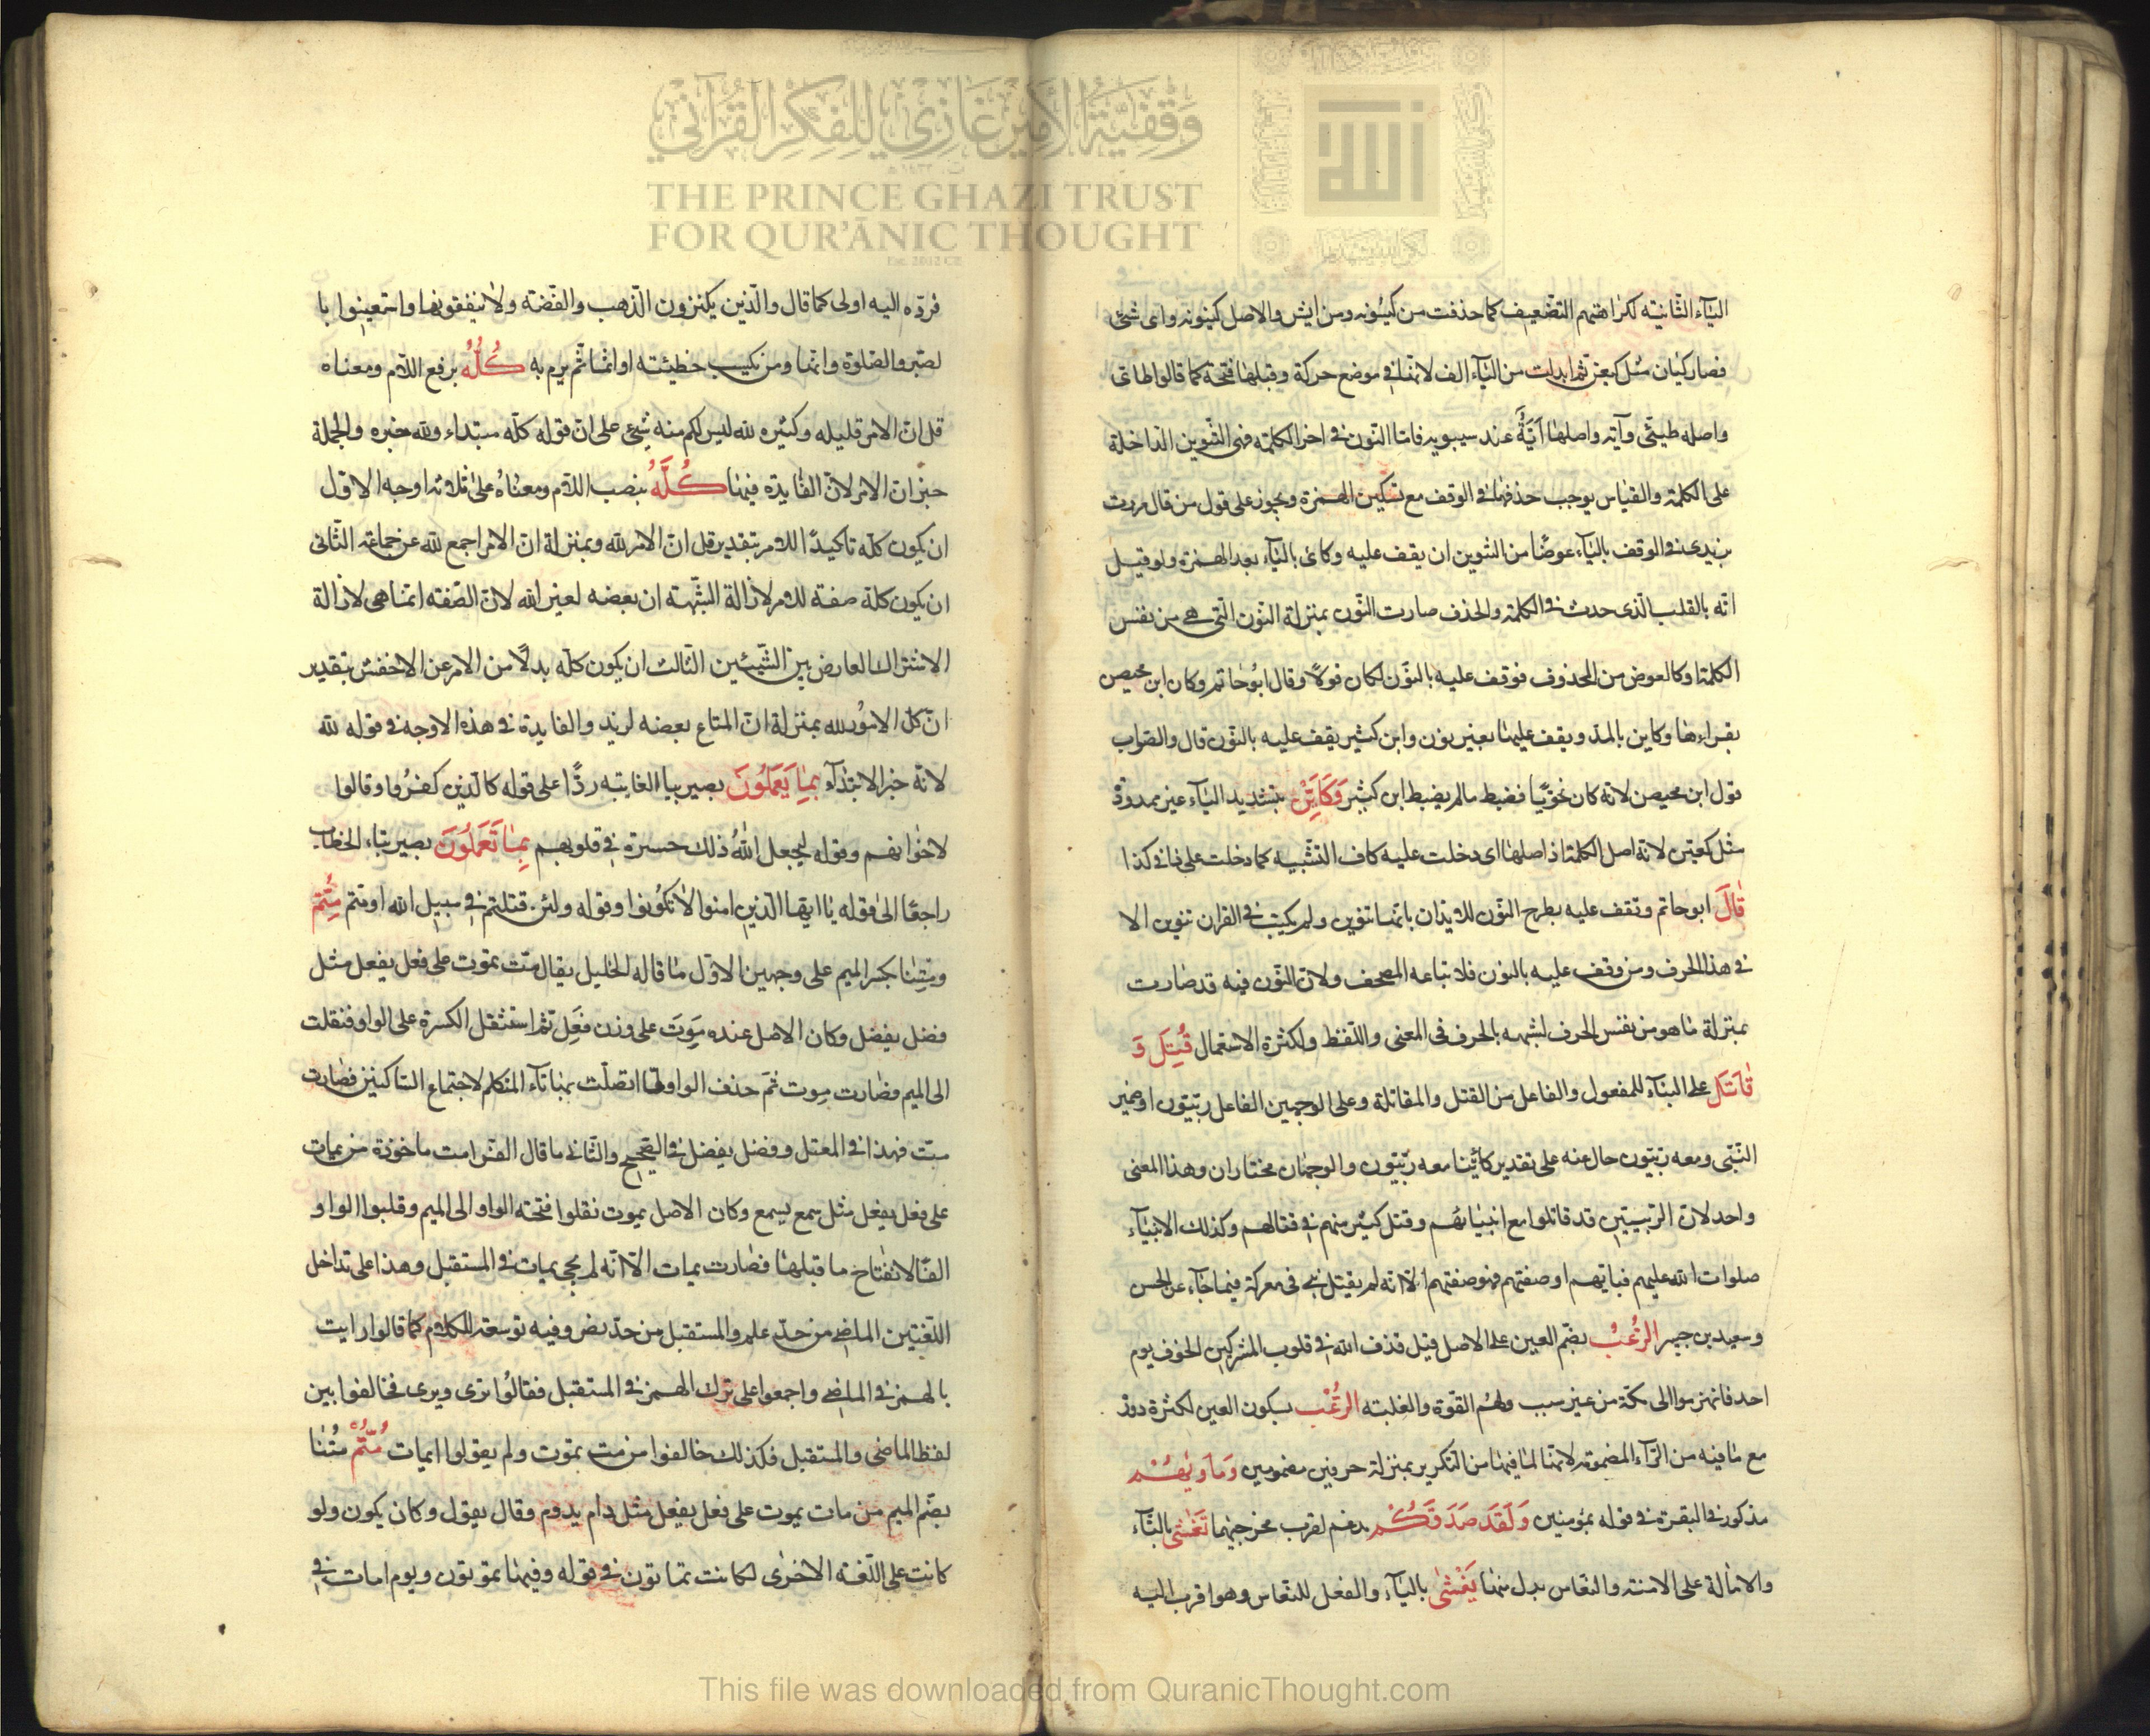 وقفية الأمير غازي للفكر القرآني
THE PRINCE GHAZI TRUST
FOR QUR'ĀNIC THOUGHT
Est. 2012 CE
الياء الثانية لكراهتهم التضعيف كما حذفت من كينونه ومن ايش والاصل كينونه واى شئ
فصار كيان مثل كيعن ثم ابدلت من الياء الف لانها فى موضع حركة وقبلها فتحة كما قالوا طائى
واصله طيئى وآية واصلها اَيَّةٌ عند سيبويه فاما النون فى اخر الكلمة فهى التنوين الداخلة
على الكلمة والقياس يوجب حذفها فى الوقف مع تسكين الهمزة ويجوز على قول من قال مررت
بزيدى فى الوقف بالياء عوضًا من التنوين ان يقف عليه وكائ بالياء بعد الهمزة ولو قيل
انه بالقلب الذى حدث فى الكلمة والحذف صارت النون بمنزلة النون التى هى من نفس
الكلمة او كالعوض من المحذوف فوقف عليه بالنون لكان قولًا وقال ابو حاتم وكان ابن محيصن
يقراءها وكاين بالمد ويقف عليها بغير نون وابن كثير يقف عليه بالنون قال والصواب
قول ابن محيصن لانه كان نحويًا فضبط مالم يضبط ابن كثير وَكَاَيِّنْ بتشديد الياء غير ممدودة
مثل كعين لانه اصل الكلمة اذ اصلها اى دخلت عليه كاف التشبيه كما دخلت على ذا فى كذا
قَالَ ابو حاتم وتقف عليه بطرح النون للايذان بانها تنوين ولم يكتب فى القران تنوين الا
فى هذا الحرف ومن وقف عليه بالنون فلاتباعه المصحف ولان النون فيه قد صارت
بمنزلة ما هو من نفس الحرف لشبهه بالحرف فى المعنى واللفظ ولكثرة الاستعمال قُتِلَ وَ
قَاتَلَ على البناء للمفعول والفاعل من القتل والمقاتلة وعلى الوجهين الفاعل ربيون او ضمير
النبى ومعه ربيون حال عنه على تقدير كائنا معه ربيون والوجهان مختاران وهذا المعنى
واحد لان الربيين قد قاتلوا مع انبيائهم وقتل كثير منهم فى قتالهم وكذلك الانبياء
صلوات الله عليهم فبايهم اوصفتهم فهو صفتهم الا انه لم يقتل نبى فى معركة فيما جاء عن الحسن
وسعيد بن جبير الرُّعُبُ بضم العين على الاصل قيل قذف الله فى قلوب المشركين الخوف يوم
احد فانهزموا الى مكة من غير سبب ولهم القوة والغلبة الرُّعْبَ بسكون العين لكثرة دوره
مع ما فيه من الراء المضمومة لانها لما فيها من التكرير بمنزلة حرفين مضمومين وَمَاْويهُمْ
مذكور فى البقرة فى قوله بمومنين وَلَقَد صَدَقَكُمْ يدغم لقرب مخرجيهما تَغْشى بالتاء
والامالة على الامنة والنعاس بدل منها يَغْشى بالياء والفعل للنعاس وهو اقرب اليه
فرده اليه اولى كما قال والذين يكنزون الذهب والفضة ولا ينفقونها واستعينوا با
لصبر والصلوة وانها ومن يكسب خطيئته او اثما ثم يرم به كُلُّهُ برفع اللام ومعناه
قل ان الامر قليله وكثيره لله ليس لكم منه شئ على ان قوله كله مبتداء ولله خبره والجملة
خبر ان الامر لان الفايدة فيها كُلَّهُ بنصب اللام ومعناه على ثلاثة اوجه الاول
ان يكون كله تاكيدًا للامر بتقدير قل ان الامر لله وبمنزلة ان الامر اجمع لله عن جماعة الثانى
ان يكون كله صفة للامر لازالة الشبهة ان بعضه لغير الله لان الصفة انما هى لازالة
الاشتراك العارض بين الشيئين الثالث ان يكون كله بدلًا من الامر عن الاخفش بتقدير
ان كل الامور لله بمنزلة ان المتاع بعضه لزيد والفايدة فى هذه الاوجه فى قوله لله
لانه خبر الابتداء بِمَا يَعْمَلُونَ بصير بياء الغايبة ردًّا على قوله كالذين كفروا وقالوا
لاخوانهم وقوله ليجعل الله ذلك حسرة فى قلوبهم بِمَا تَعْمَلُونَ بصير بتاء الخطاب
راجعًا الى قوله يا ايها الذين امنوا لا تكونوا وقوله ولئن قتلتم فى سبيل الله او متم مِتُّمْ
ومِتنا بكسر الميم على وجهين الاول ما قاله الخليل يقال مت تموت على فعل يفعل مثل
فضل يفضل وكان الاصل عنده مَوِتَ على وزن فَعِل ثم استثقل الكسرة على الواو فنقلت
الى الميم فصارت مِوت ثم حذف الواو لما اتصلت بها تاء المتكلم لاجتماع الساكنين فصارت
مت فهذا فى المعتل وفضل يفضل فى الصحيح والثانى ما قال الفرا مت ماخوذة من يمات
على فعل يفعل مثل سمع يسمع وكان الاصل يموت نقلوا فتحة الواو الى الميم وقلبوا الواو
الفًا لانفتاح ما قبلها فصارت يمات الا انه لم يجى يمات فى المستقبل وهذا على تداخل
اللغتين الماضى من حد علم والمستقبل من حد نصر وفيه توسعة الكلام كما قالوا رايت
بالهمز فى الماضى واجمعوا على ترك الهمز فى المستقبل فقالوا نرى ويرى فخالفوا بين
لفظ الماضى والمستقبل فكذلك خالفوا من مت بموت ولم يقولوا ايمات مُتُّمْ مُتْنا
بضم الميم من مات يموت على فعل يفعل مثل دام يدوم وقال يقول وكان يكون ولو
كانت على اللغة الاخرى لكانت تماتون فى قوله وفيها تموتون ويوم امات فى
This file was downloaded from QuranicThought.com